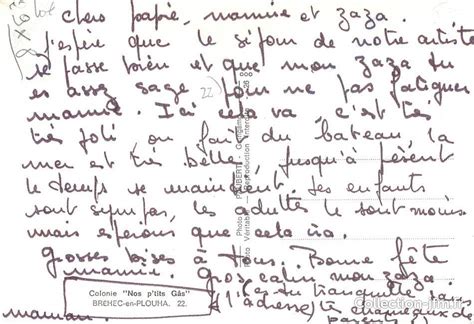 Chers papie, mamie et zaza.
J'espère que le séjour de notre artiste
se passe bien et que mon zaza tu
es assez sage pour ne pas fatiguer
22
mamie. Ici cela va, c'est très
très joli on fait du bateau, la
mer est très belle, jusqu'à présent
le temps se maintient. Les enfants
sont sympas, les adultes le sont moins
mais espérons que cela ira.
Grosses bises à tous. Bonne fête
mamie. Gros calin mon zaza.
Colonie "Nos p'tits Gâs"
BREHEC-en-PLOUHA. 22.
(es-tu tranquille
adresse)
maman.
Collection-jfm.fr